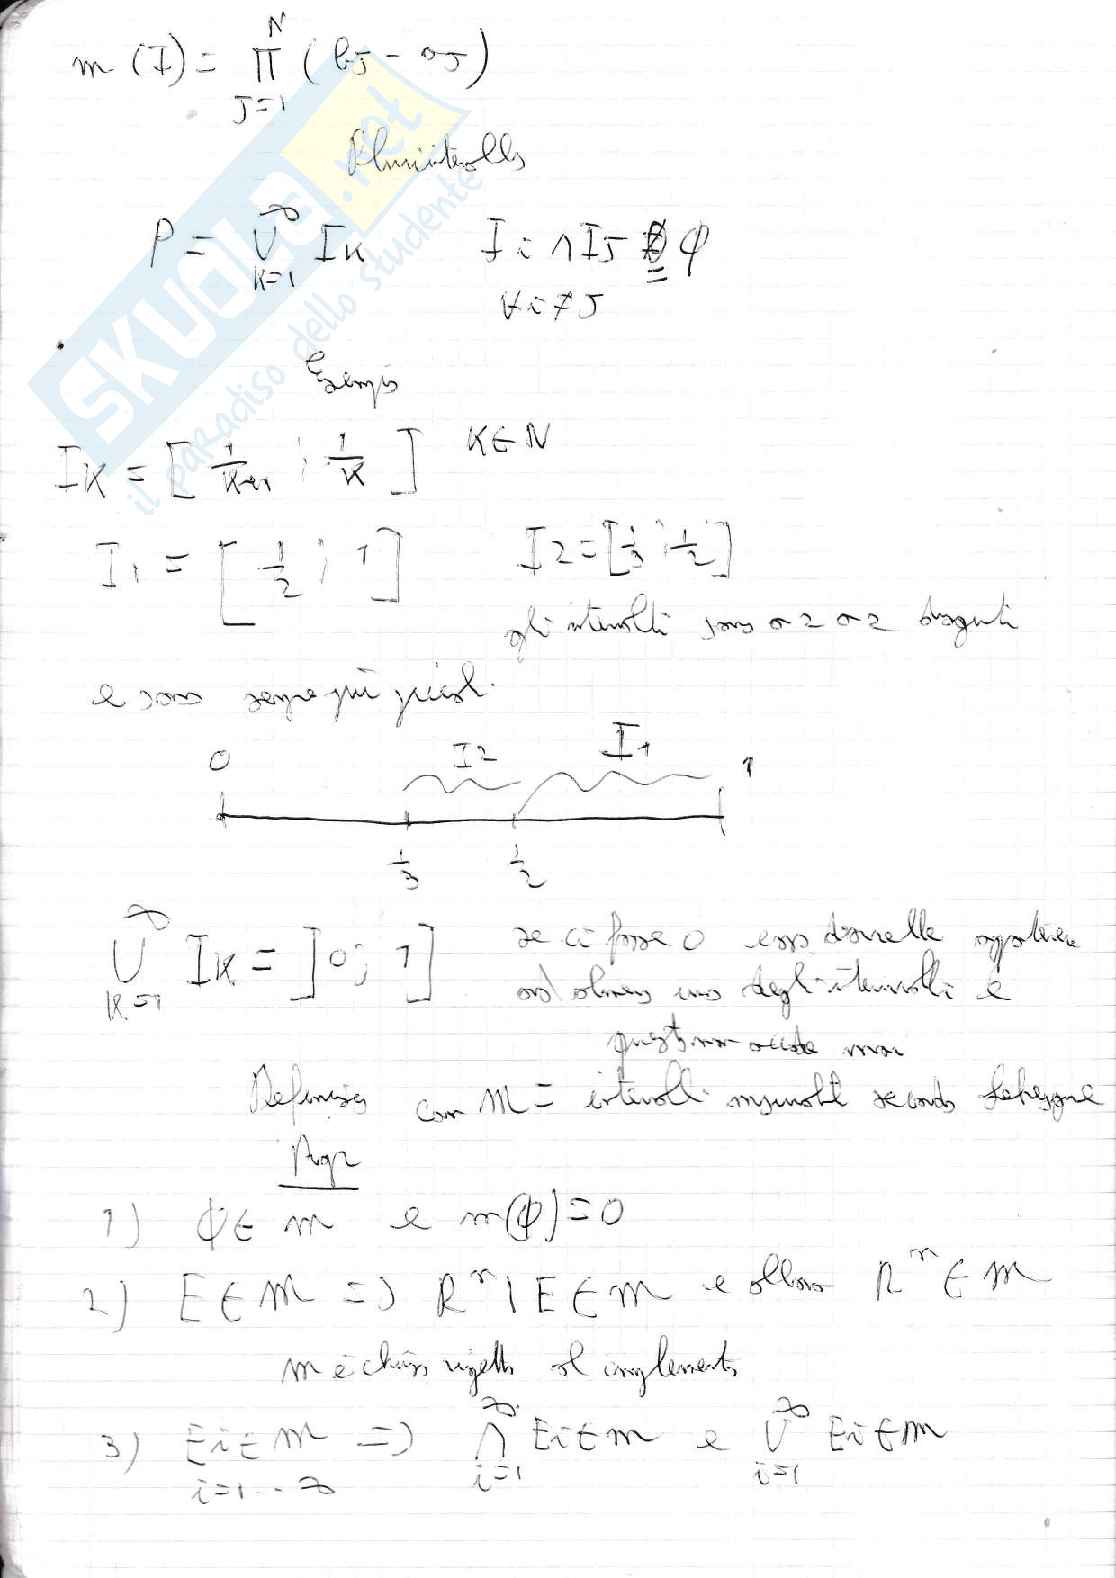 m (I) = ∏_{J=1}^{N} (bJ - aJ)
Plurintervallo
P = ∪_{K=1}^{∞} IK   Ii ∩ IJ = φ
∀ i ≠ J
Esempio
IK = [1/K+1 ; 1/K]   K ∈ N
I1 = [1/2 ; 1]   I2 = [1/3 ; 1/2]
gli intervalli sono a 2 a 2 disgiunti
e sono sempre più piccoli.
0   I2   I1   1
1/3   1/2
∪_{K=1}^{∞} IK = ]0 ; 1]   se ci fosse 0 esso dovrebbe appartenere
ad almeno uno degli intervalli e
questo non accade mai
Definisco con M = intervalli misurabili secondo Lebesgue
Prop
1) φ ∈ m e m(φ) = 0
2) E ∈ M => R^n \ E ∈ m e allora R^n ∈ m
m è chiuso rispetto al complemento
3) Ei ∈ m => ∩_{i=1}^{∞} Ei ∈ m e ∪_{i=1}^{∞} Ei ∈ m
i=1 .. ∞
SKUOLA.net
il paradiso dello studente